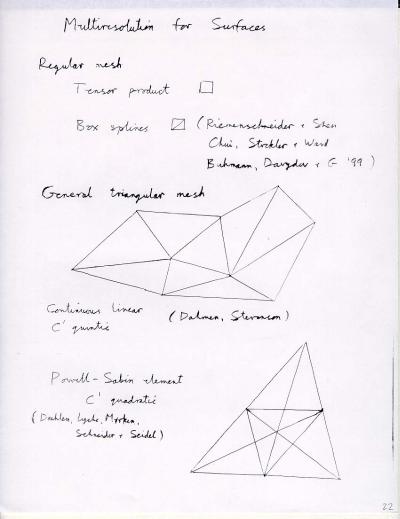 Multiresolution for Surfaces
Regular mesh
Tensor product
Box splines (Riemenschneider + Shen
Chui, Stöckler + Ward
Buhmann, Davydov + G '99)
General triangular mesh
Continuous linear (Dahmen, Stevenson)
C' quintic
Powell-Sabin element
C' quadratic
(Dæhlen, Lyche, Mørken,
Schneider + Seidel)
22